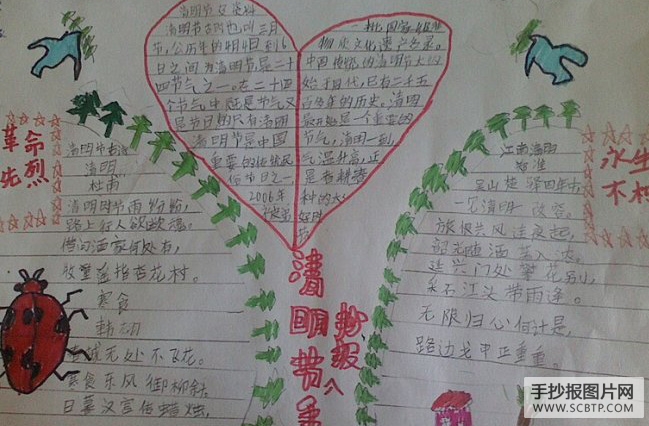 清明节及资料
清明节古时也叫三月
节,公历年的4月4日到6
日之间为清明节是二十
四节气之一。在二十四
个节气中既是节气又
是节日的只有清明
清明节是中国
重要的传统民
俗节日之一
2006年
一批国家级非
物质文化遗产名录。
中国传统的清明节大约
始于周代,已有二千五
百多年的历史。清明
最开始是一个重要的
节气,清明一到,
气温升高,正
是春耕春
种的大
好时
节
革命
先烈
永生
不朽
清明
杜甫
清明时节雨纷纷,
路上行人欲欲魂。
借问酒家何处有,
牧童遥指杏花村。
寒食
韩翃
春城无处不飞花。
寒食东风御柳斜。
日暮汉宫传蜡烛,
江南清明
郑准
吴山楚驿四年中
一见清明一改容。
旅恨共风连夜起,
韶光随酒著人浓。
延兴门处攀花别,
采石江头带雨逢。
无限归心何计是,
路边戈甲正重重。
清明节手
抄报
八
手抄报图片网
WWW.SCBTP.COM